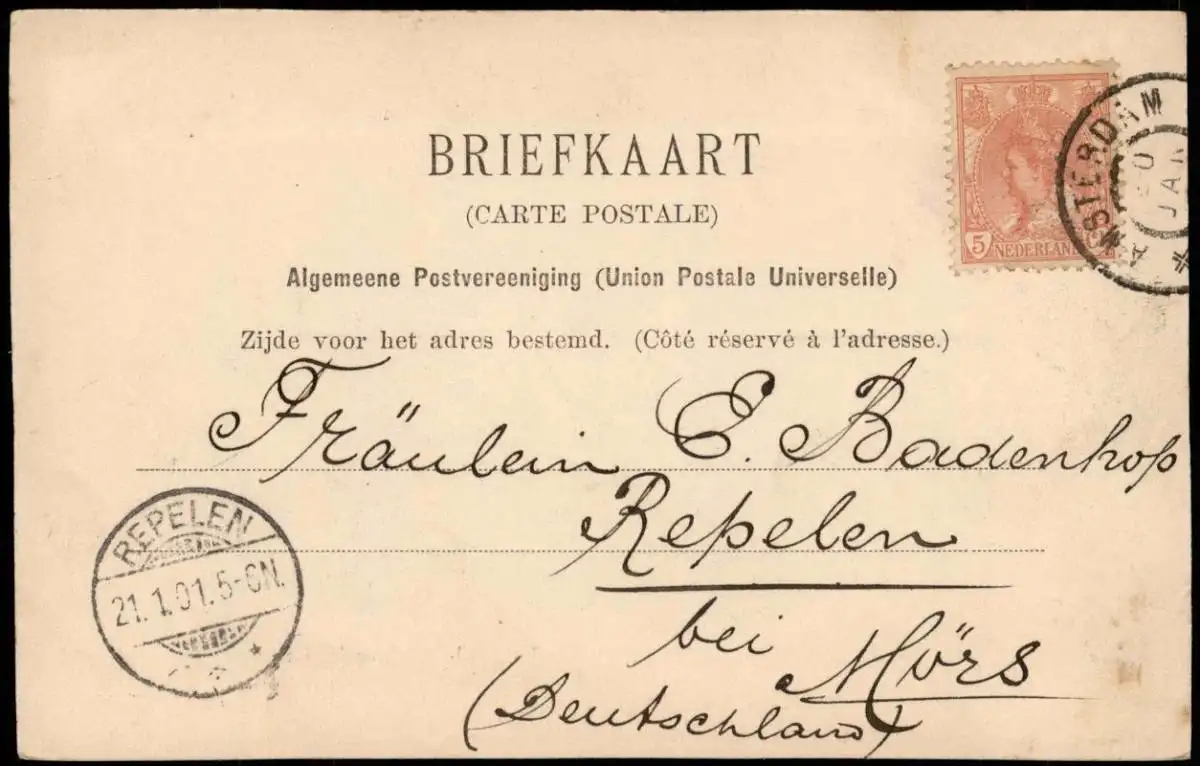 BRIEFKAART
(CARTE POSTALE)
Algemeene Postvereeniging (Union Postale Universelle)
Zijde voor het adres bestemd. (Côté réservé à l'adresse.)
5
NEDERLAND
AMSTERDAM
20
JAN
Fräulein E. Badenhop
Repelen
bei Mörs
(Deutschland)
REPELEN
21.1.01.5-6N.